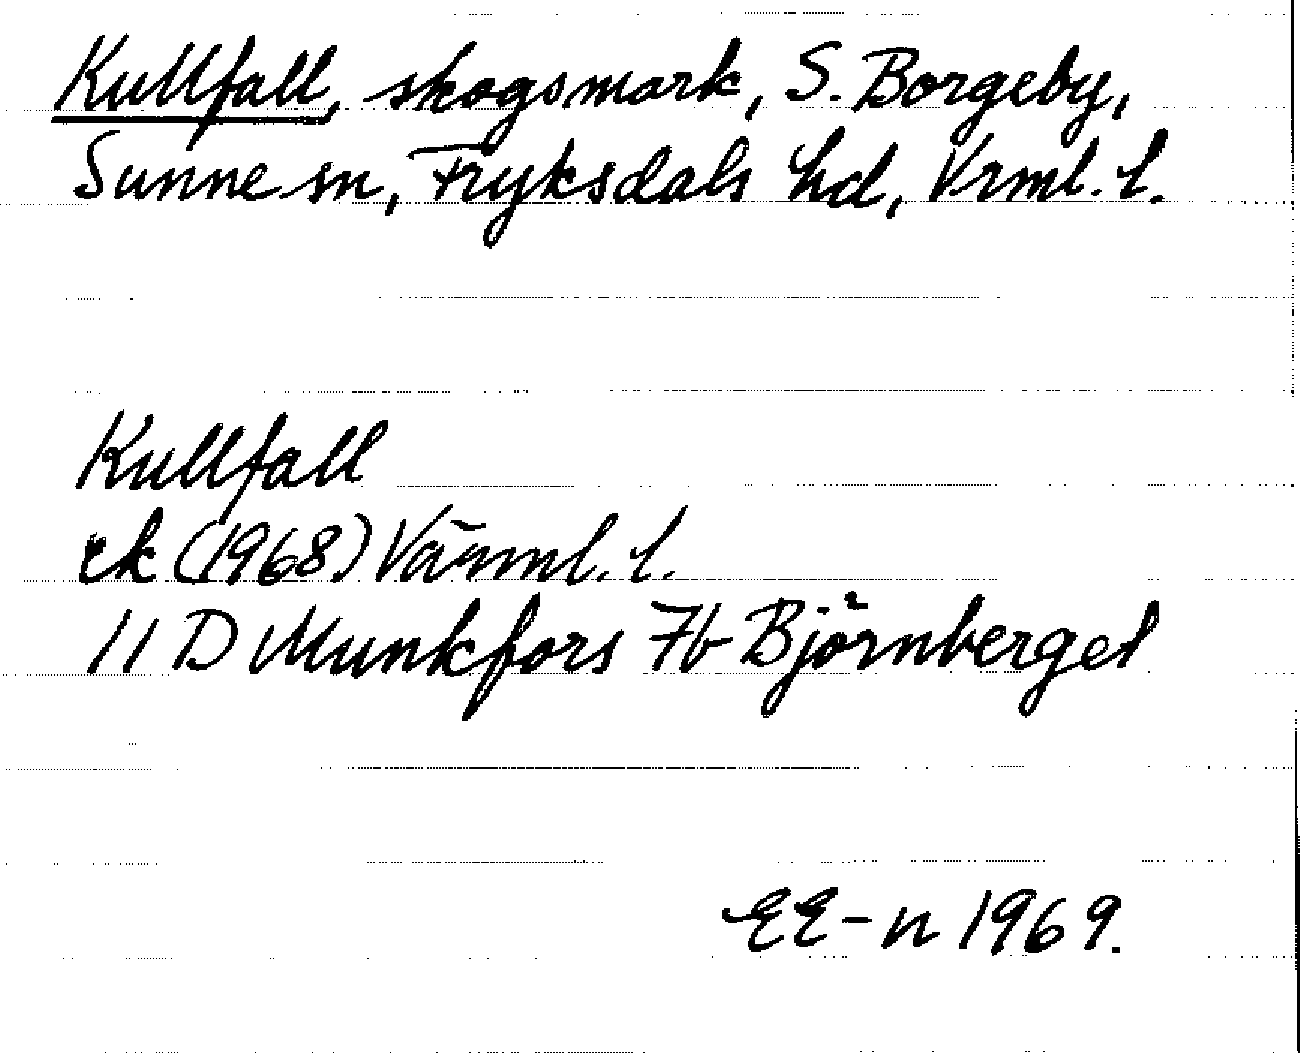 Kullfall, skogsmark, S. Borgeby,
Sunne sn, Fryksdals hd, Vrml. l.
Kullfall
ek (1968) Värml. l.
11 D Munkfors 7b Björnberget
EE-n 1969.